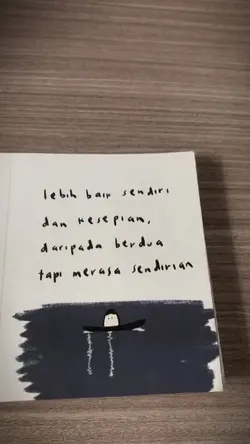 lebih baik sendiri
dan kesepian,
daripada berdua
tapi merasa sendirian